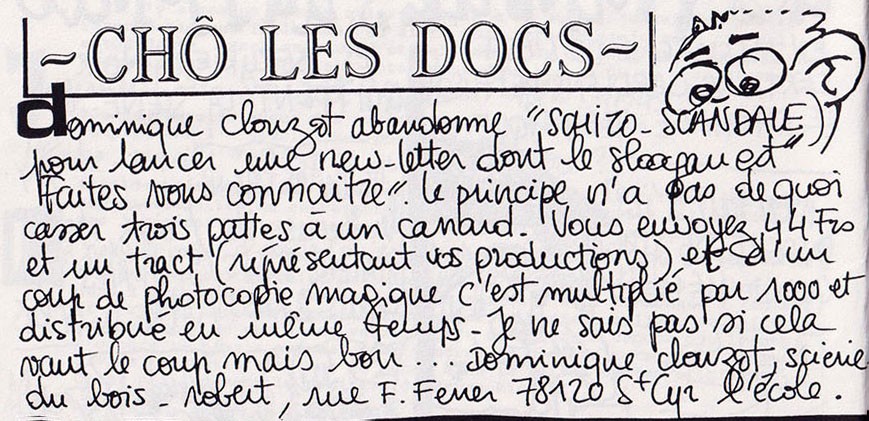 ~CHÔ LES DOCS~
dominique clouzot abandonne "SCHIZO-SCANDALE)
pour lancer une new-letter dont le sloogan est"
"Faites vous connaitre". Le principe n'a pas de quoi
casser trois pattes à un canard. Vous envoyez 44 Frs
et un tract (représentant vos productions) et d'un
coup de photocopie magique c'est multiplié par 1000 et
distribué en même temps - Je ne sais pas si cela
vaut le coup mais bon... Dominique clouzot, scierie
du bois - robert, rue F. Fener 78120 St Cyr l'école.